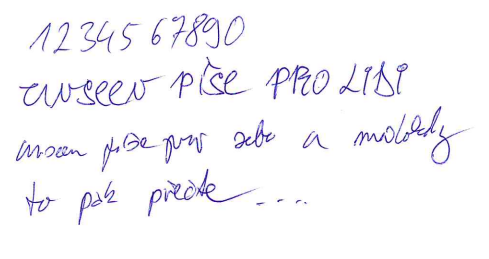 1234567890
cuseev píše PRO LIDI
cuseev píše pro sebe a málokdy
to pak přečte ....